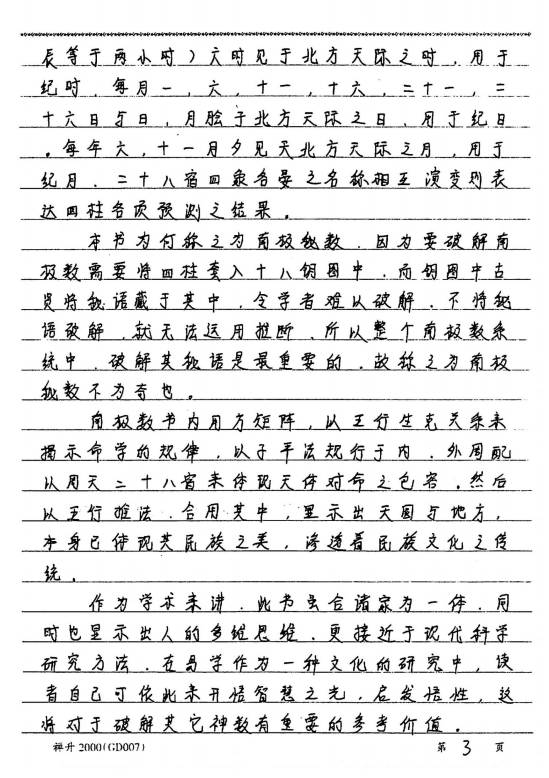 辰等于两小时）六时见于北方天际之时，用于
纪时．每月一，六，十一，十六，二十一，二
十六日与日，月脸于北方天际之日，用于纪日
。每年六，十一月夕见天北方天际之月，用于
纪月．二十八宿四象各晏之名称相互演变列表
达四柱各项预测之结果。
本书为何称之为南极秘数．因为要破解南
极数需要将四柱套入十八钥图中．而钥图中古
贤将秘语藏于其中，令学者难以破解．不将秘
语破解，就无法运用推断．所以整个南极数系
统中．破解其秘语是最重要的．故称之为南极
秘数不为奇也。
南极数书内用方矩阵，以五行生克关系来
揭示命学的规律，以子平法规行于内．外周配
以周天二十八宿来体现天体对命之包容．然后
以五行推法．合用其中，显示出天圆与地方，
本身已体现其民族之美，渗透着民族文化之传
统．
作为学术来讲．此书虽合诸家为一体．同
时也显示出人的多维思维．更接近于现代科学
研究方法．在易学作为一种文化的研究中，读
者自己可依此来开悟智慧之光，启发悟性，这
将对于破解其它神数有重要的参考价值。
禅升 2000(GD007) 第 3 页